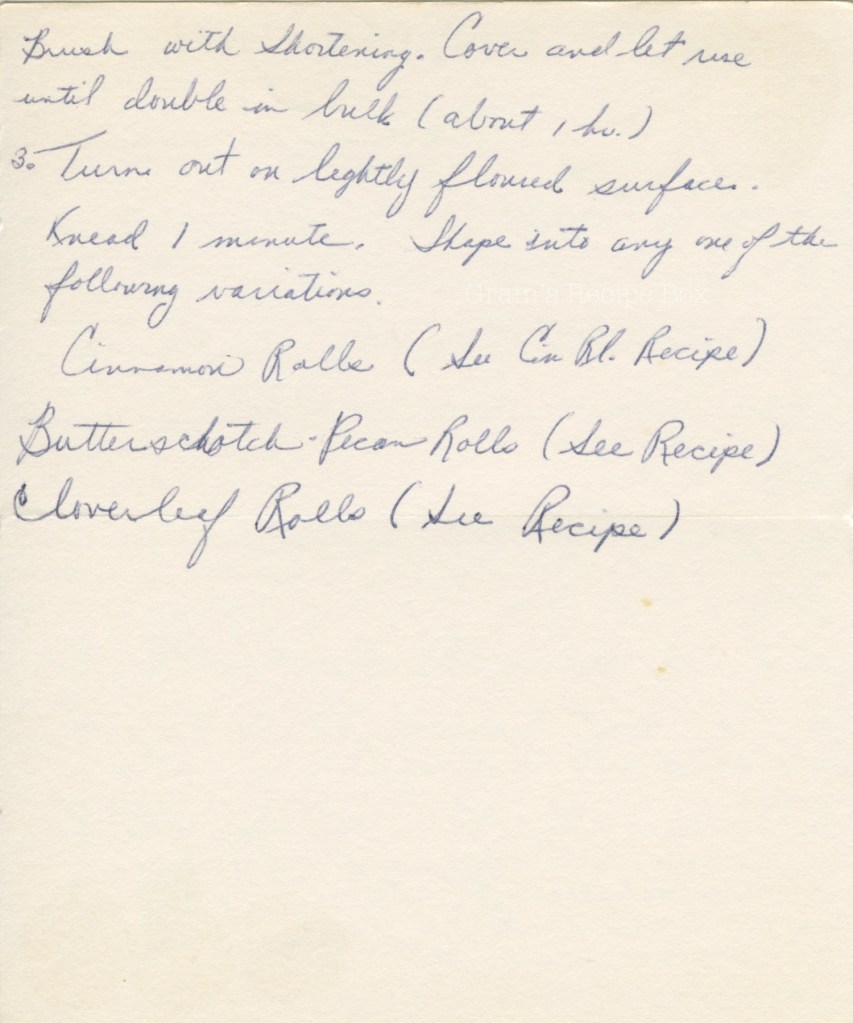 Brush with Shortening. Cover and let rise
until double in bulk (about 1 hr.)
3. Turn out on lightly floured surface.
Knead 1 minute. Shape into any one of the
following variations.
Gram's Recipe Box
Cinnamon Rolls (See Cin Bl. Recipe)
Butterschotch-Pecan Rolls (See Recipe)
Cloverleaf Rolls (See Recipe)